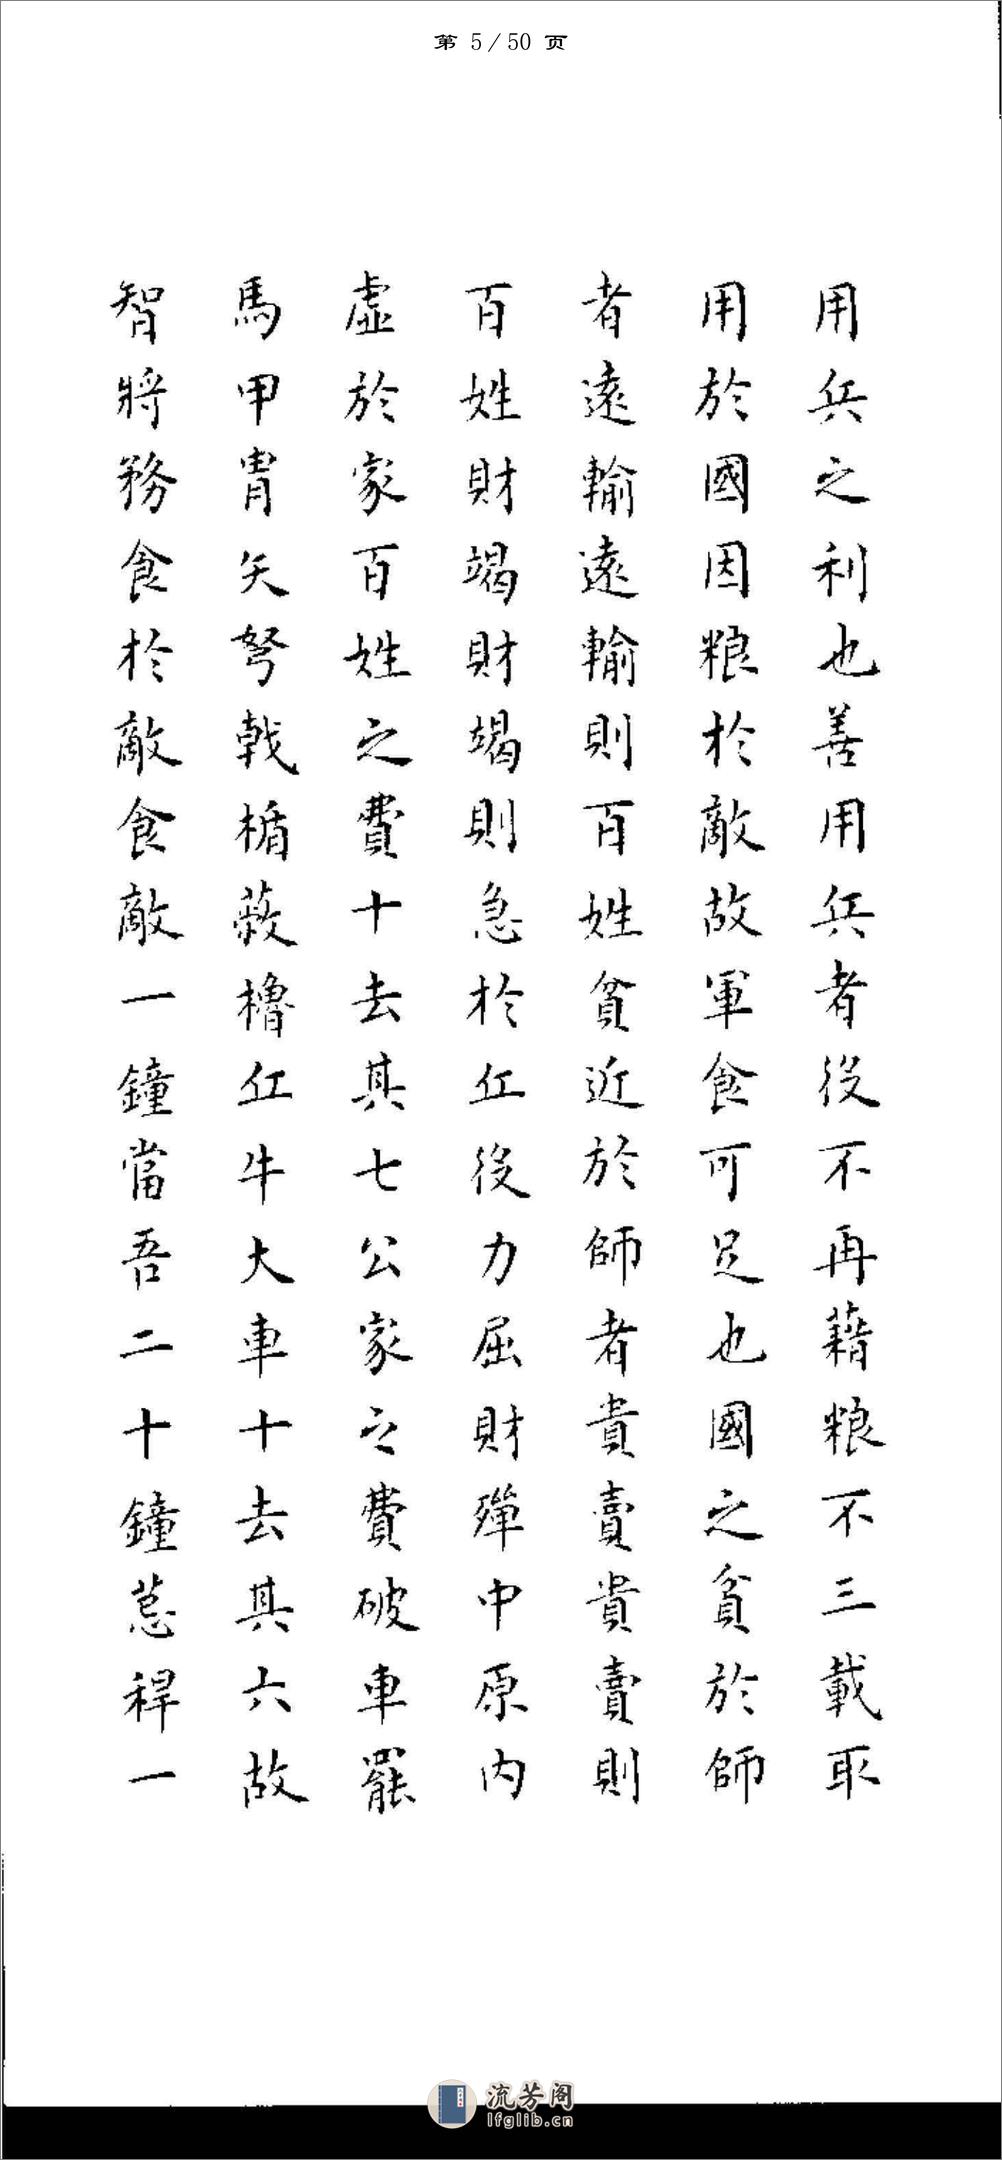 第 5/50 页
用兵之利也善用兵者役不再藉粮不三載取
用於國因粮於敵故軍食可足也國之貧於師
者遠輸遠輸則百姓貧近於師者貴賣貴賣則
百姓財竭財竭則急於丘役力屈財殫中原内
虛於家百姓之費十去其七公家之費破車罷
馬甲冑矢弩戟楯蔽櫓丘牛大車十去其六故
智將務食於敵食敵一鐘當吾二十鐘䓗稈一
流芳阁
lfglib.cn